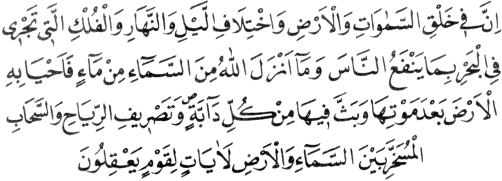 اِنَّ فِيْ خَلْقِ السَّمٰوَاتِ وَالْاَرْضِ وَاخْتِلَافِ الَّيْلِ وَالنَّهَارِ وَالْفُلْكِ الَّتِيْ تَجْرِيْ
فِي الْبَحْرِ بِمَا يَنْفَعُ النَّاسَ وَمَآ اَنْزَلَ اللهُ مِنَ السَّمَآءِ مِنْ مَآءٍ فَاَحْيَا بِهِ
الْاَرْضَ بَعْدَ مَوْتِهَا وَبَثَّ فِيْهَا مِنْ كُلِّ دَآبَّةٍ وَتَصْرِيْفِ الرِّيَاحِ وَالسَّحَابِ
الْمُسَخَّرِ بَيْنَ السَّمَآءِ وَالْاَرْضِ لَاٰيَاتٍ لِقَوْمٍ يَعْقِلُوْنَ